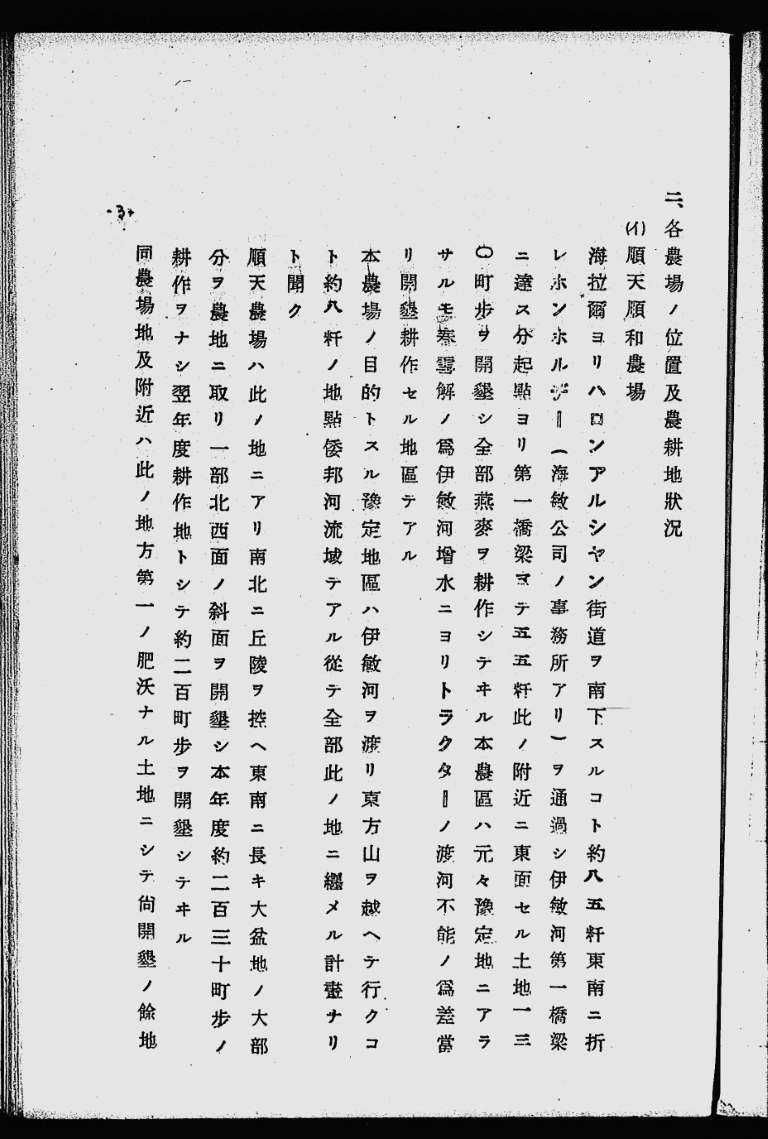 二、各農場ノ位置及農耕地狀況
(イ)順天順和農場
海拉爾ヨリハロンアルシヤン街道ヲ南下スルコト約八五粁東南ニ折
レホンホルヂー(海敏公司ノ事務所アリ)ヲ通過シ伊敏河第一橋梁
ニ達ス分起點ヨリ第一橋梁マテ五五粁此ノ附近ニ東面セル土地一三
〇町步ヲ開墾シ全部燕麥ヲ耕作シテヰル本農區ハ元々豫定地ニアラ
サルモ春雪解ノ爲伊敏河增水ニヨリトラクターノ渡河不能ノ爲差當
リ開墾耕作セル地區テアル
本農場ノ目的トスル豫定地區ハ伊敏河ヲ渡リ東方山ヲ越ヘテ行クコ
ト約八粁ノ地點倭邦河流域テアル從テ全部此ノ地ニ纒メル計畫ナリ
ト聞ク
順天農場ハ此ノ地ニアリ南北ニ丘陵ヲ控ヘ東南ニ長キ大盆地ノ大部
分ヲ農地ニ取リ一部北西面ノ斜面ヲ開墾シ本年度約二百三十町步ノ
耕作ヲナシ翌年度耕作地トシテ約二百町步ヲ開墾シテヰル
同農場地及附近ハ此ノ地方第一ノ肥沃ナル土地ニシテ尙開墾ノ餘地
-3-